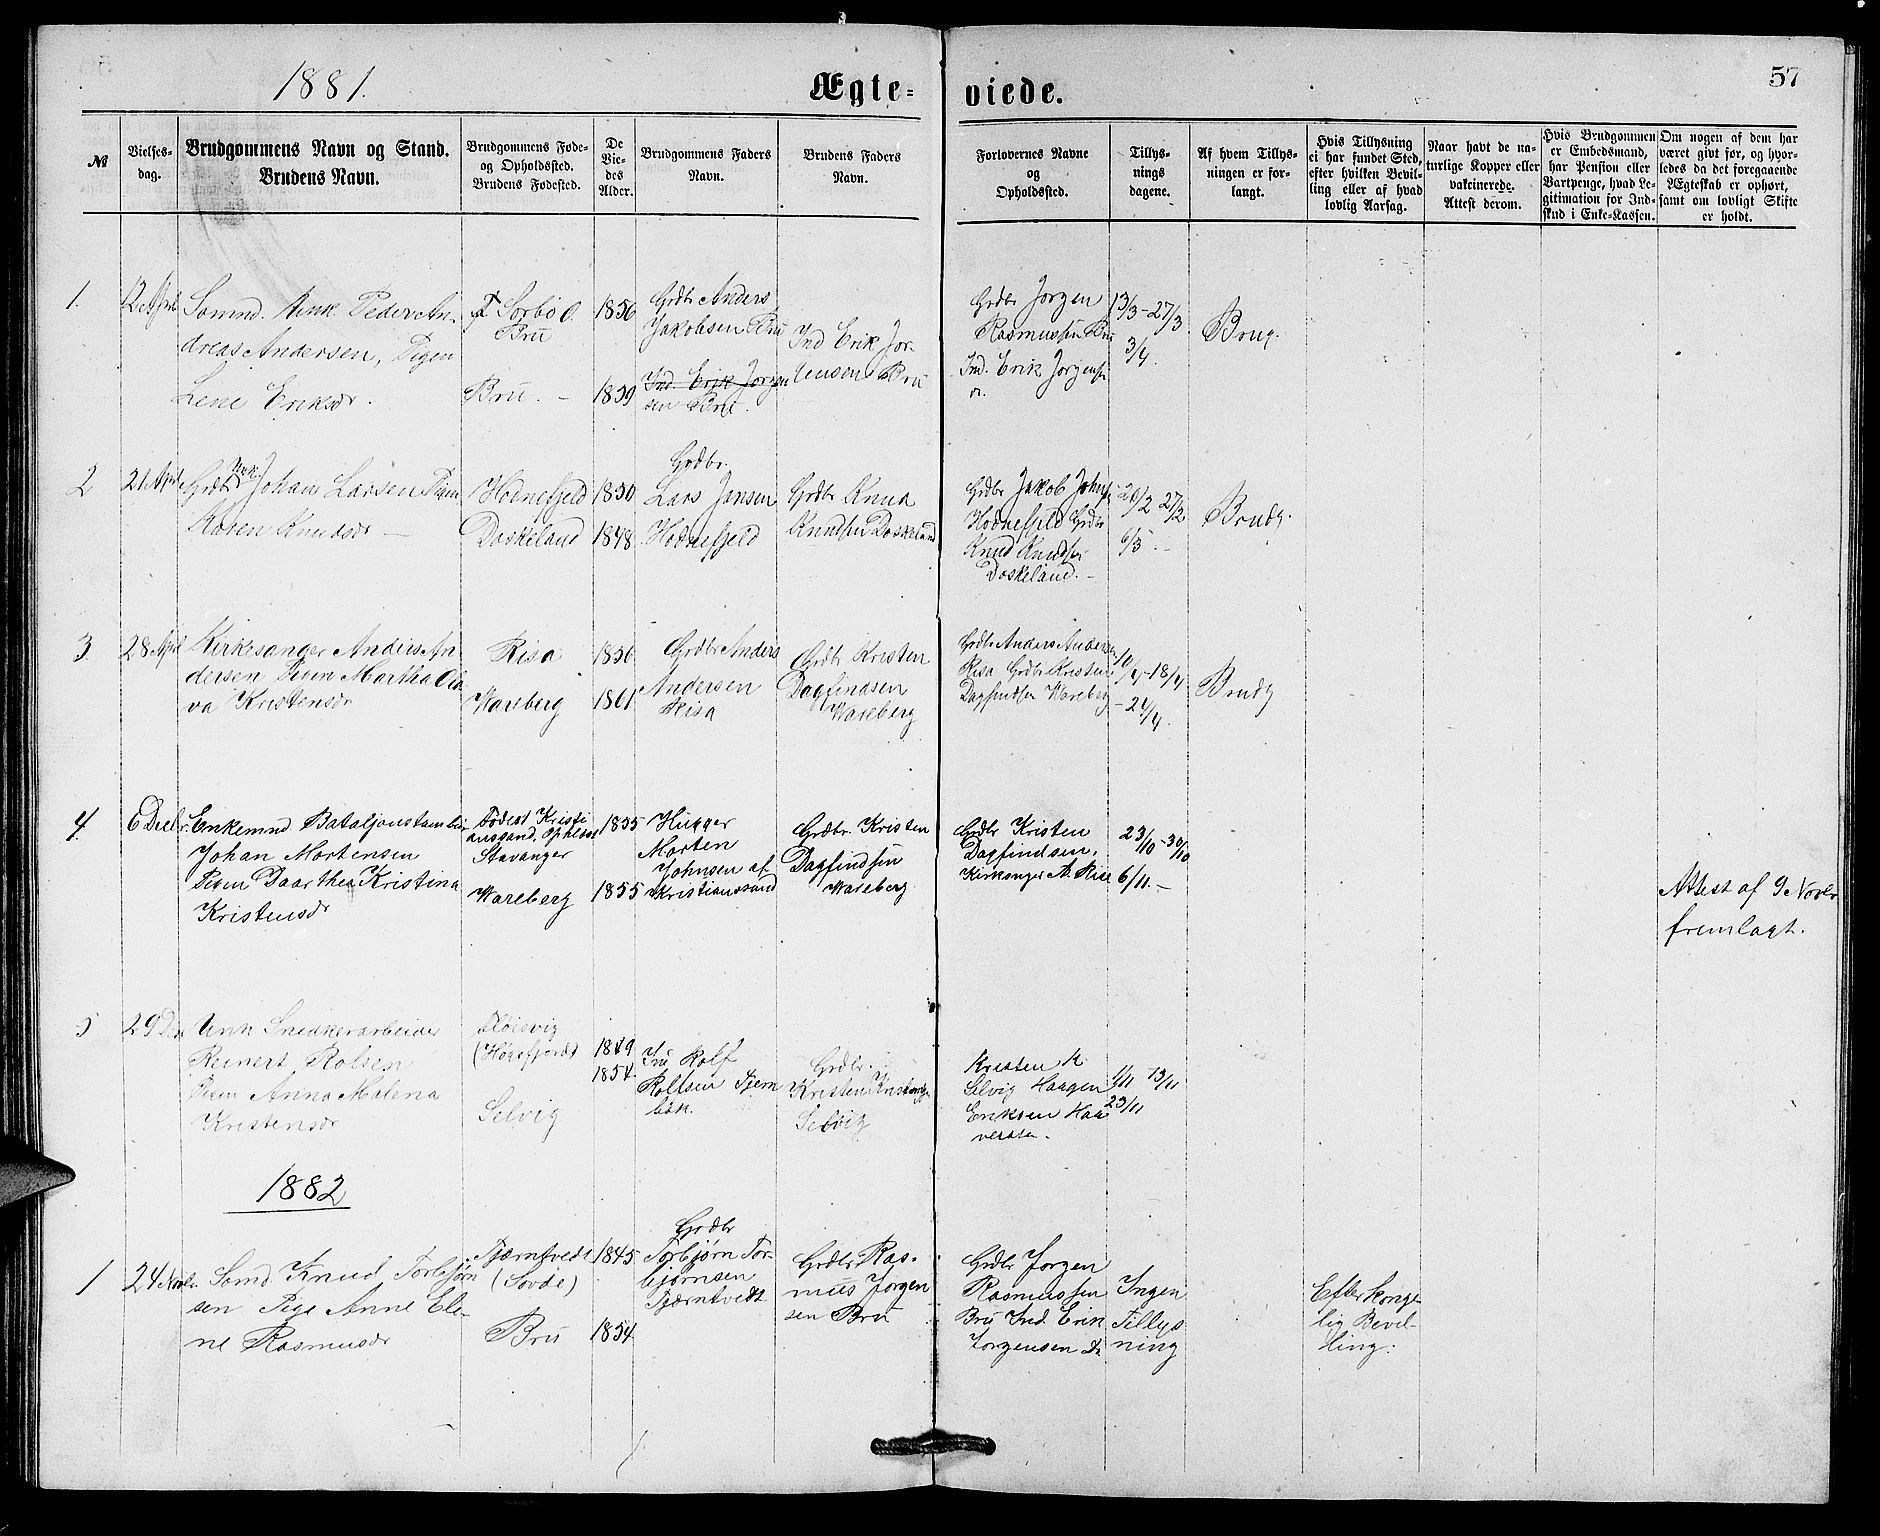 1881.
Ægte-
viede.
57
№
Vielses-
dag.
Brudgommens Navn og Stand.
Brudens Navn.
Brudgommens Føde-
og Opholdssted.
Brudens Fødested.
De
Vie-
des
Alder.
Brudgommens Faders
Navn.
Brudens Faders
Navn.
Forlovernes Navne
og
Opholdssted.
Tillys-
nings
dagene.
Af hvem Tillys-
ningen er for-
langt.
Hvis Tillysning
ei har fundet Sted,
efter hvilken Bevil-
ling eller af hvad
lovlig Aarsag.
Naar havt de na-
turlige Kopper eller
vakcinerede.
Attest derom.
Hvis Brudgommen
er Embedsmand,
har Pension eller
Vartpenge, hvad Le-
gitimation for Ind-
skud i Enke-Kassen.
Om nogen af dem har
været givt før, og hvor-
ledes da det foregaaende
Ægteskab er ophørt,
samt om lovligt Skifte
er holdt.
1.
12 April
Sømnd. Unk Peder An-
dreas Andersen, Pigen
Lene Eriksdr.
Sørbø
Bru
Bru. -
1856
1859
Grdbr Anders
Jakobsen Bru
Ind. Erik Jørgen
sen Bru.
Ind Erik Jør-
gensen Bru
Grdbr Jørgen
Rasmussen Bru
Ind. Erik Jørgens
13/3 - 27/3
3/4.
Brug.
2
21 April
Grdbr Unk. Johan Larsen Pigen
Karen Knudsdr -
Hodnefjeld
Daskeland
1850
1848
Grdbr.
Lars Jansen
Hodnefjeld
Grdbr Knud
Knudsen Daskeland
Grdbr Jakob Johns
Hodnefjeld Grdbr
Knud Knudsen
Daskeland. -
20/2 27/2
6/3. -
Brudg.
3
28 April
Kirkesanger Anders An
dersen Pigen Martha Ola
va Kristensdr
Risa
Wareberg
1856
1861
Grdbr Anders
Andersen
Risa
Grdbr Kristen
Dagfindsen
Wareberg
Grdbr Anders Andersen
Risa Grdbr Kristen
Dagfindsen Wareberg
10/4 - 18/4
- 24/4.
Brudg
4.
6 Decbr.
Enkemnd Bataljonstambur
Johan Mortensen
Pigen Daarthea Kristina
Kristensdr
Fødest Kristi
anssand, Opholdss
Stavanger
Wareberg
1855
1855
Hugger
Morten
Johnsen af
Kristianssand
Grdbr. Kristen
Dagfindsen
Wareberg
Grdbr Kristen
Dagfindsen.
Kirksanger A. Risa
23/10 - 30/10
6/11. -
Attest af 9 Novbr
fremlagt.
5
29 Dec
Unk Snedkerarbeider
Reinert Rolsen
Pigen Anna Malena
Kristensdr
(Høgsfjord)
Selvig
1849
1854.
Rolf
Rolfsen Tjern
Grdbr.
Kristen Kristensen
Selvig
Kristen K.
Selvig Haagen
Eriksen Haa
13/11
23/11
1882
1
24 Novbr.
Sømd. Knud Torbjørn
sen Pige Anne Ele-
ne Rasmusdr
Tjærntvedt
(Sovde)
Bru
1845
1854
Grdbr
Torbjørn Tor-
bjørnsen
Tjærntvedt
Grdbr Ras-
mus Jørgen
sen Bru
Grdbr Jørgen
Rasmussen
Bru Ind. Erik
Jørgensen
Ingen
Tillys
ning
Efter konge-
lig Bevil-
ling.